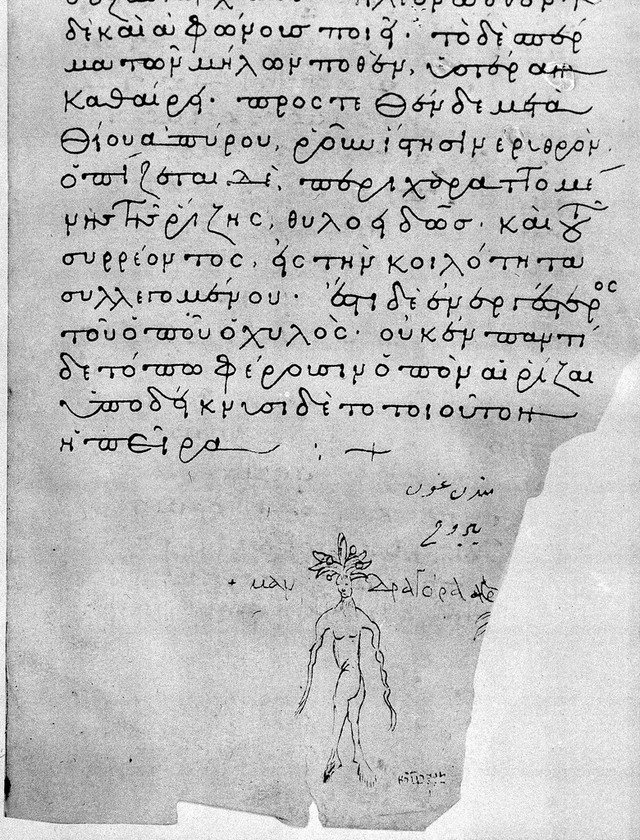 δὲ καὶ ἀφώνοις ποιεῖ· τὸ δὲ σπέρ
μα τῶν μήλων ποθὲν, ὑστέραν
καθαίρει· προς τε θὲν δε μετα
θίου ἀπύρου, ῥοῦν ἵστησιν ἐριθρόν.
ὀπίζεται δὲ, περιχαραττομέ
νης τῆς ῥίζης, θυλοειδῶς· καὶ τοῦ
συρρέοντος, εἰς τὴν κοιλότητα
συλλεγομένου· ἐστι δὲ ἐνεργέστερος
τοῦ ὀποῦ ὁ χυλὸς· οὐκ ἐν παντὶ
δε τόπω φέρουσιν ὀπὸν αἱ ῥίζαι
ὑποδείκνυσι δὲ το τοιοῦτον
ἡ πεῖρα
يبروح
+ μαν δραγόρα